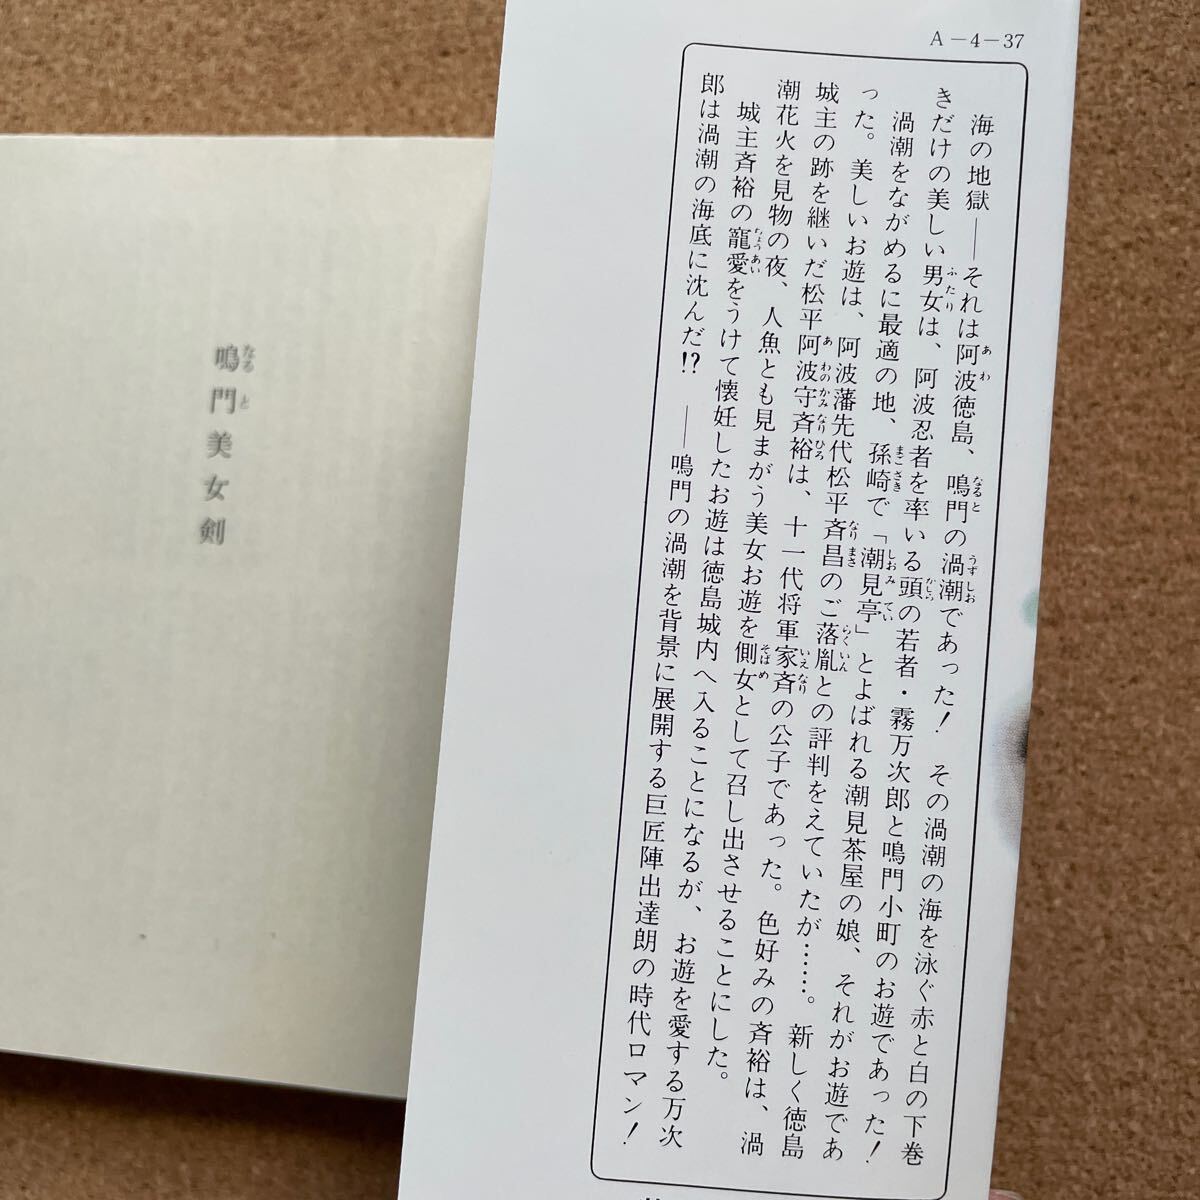 A－4－37
海の地獄――それは阿波徳島、鳴門の渦潮であった！　その渦潮の海を泳ぐ赤と白の下巻
きだけの美しい男女は、阿波忍者を率いる頭の若者・霧万次郎と鳴門小町のお遊であった！
渦潮をながめるに最適の地、孫崎で「潮見亭」とよばれる潮見茶屋の娘、それがお遊であ
った。美しいお遊は、阿波藩先代松平斉昌のご落胤との評判をえていたが……。新しく徳島
城主の跡を継いだ松平阿波守斉裕は、十一代将軍家斉の公子であった。色好みの斉裕は、渦
潮花火を見物の夜、人魚とも見まがう美女お遊を側女として召し出させることにした。
城主斉裕の寵愛をうけて懐妊したお遊は徳島城内へ入ることになるが、お遊を愛する万次
郎は渦潮の海底に沈んだ!?　――鳴門の渦潮を背景に展開する巨匠陣出達朗の時代ロマン！
鳴門美女剣